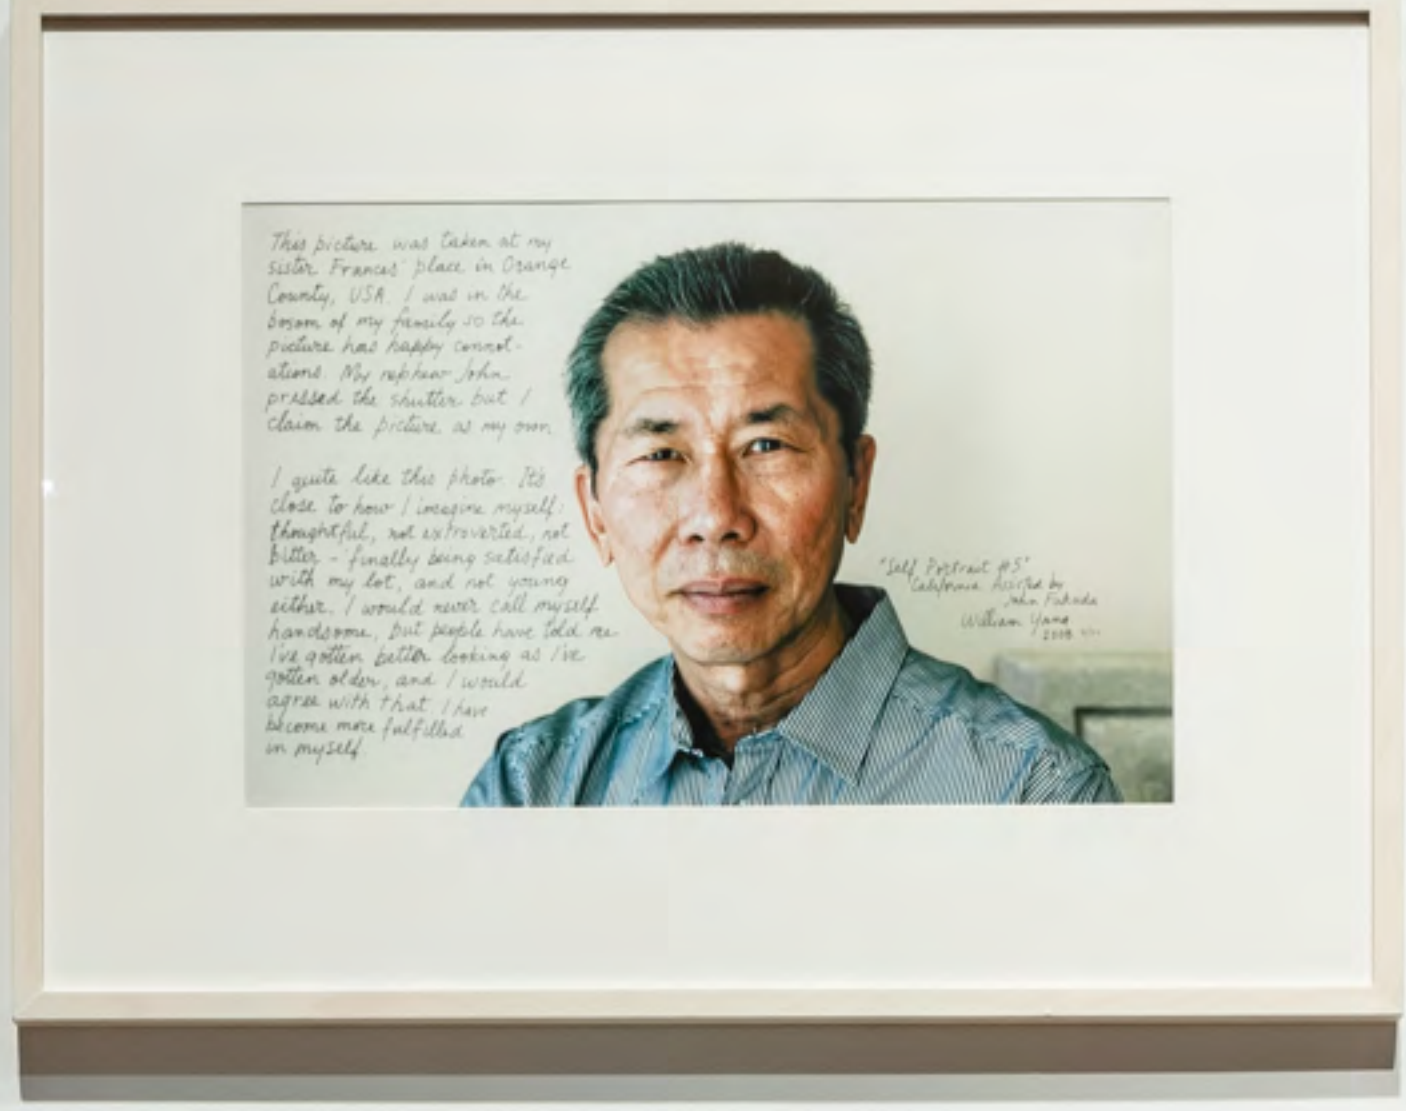 This picture was taken at my
sister Frances' place in Orange
County, USA. I was in the
bosom of my family so the
picture has happy connot-
ations. My nephew John
pressed the shutter but I
claim the picture as my own
I quite like this photo. It's
close to how I imagine myself:
thoughtful, not extroverted, not
bitter - finally being satisfied
with my lot, and not young
either. I would never call myself
handsome, but people have told me
I've gotten better looking as I've
gotten older, and I would
agree with that. I have
become more fulfilled
in myself.
"Self Portrait #5"
California Assisted by
John Fukuda
William Yang
2008